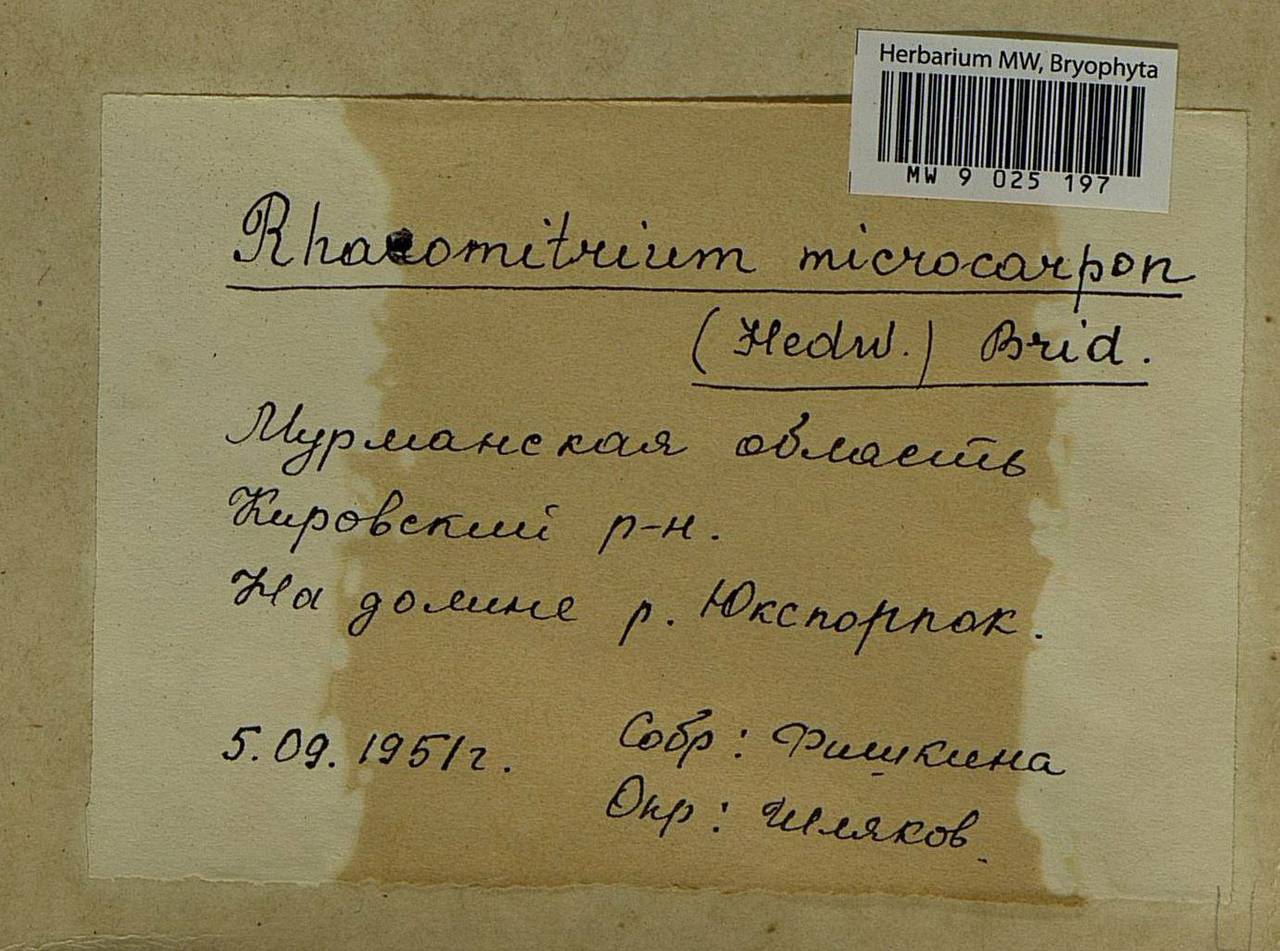 Herbarium MW, Bryophyta
MW 9 025 197
Rhacomitrium microcarpon
(Hedw.) Brid.
Мурманская область
Кировский р-н.
На долине р. Юкспорпок.
5.09.1951г.
Собр: Фишкина
Опр: Шляков.